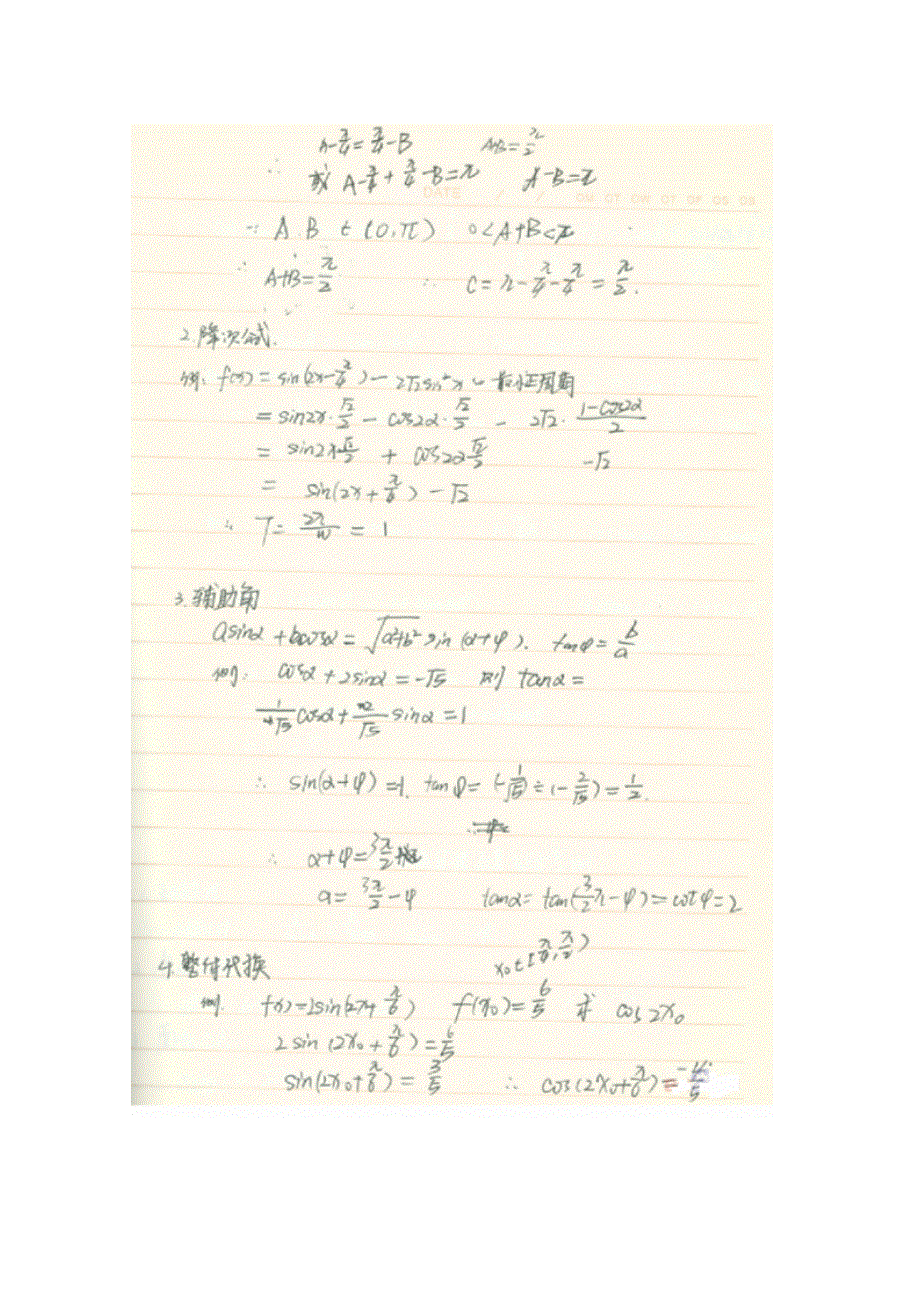 A-π/4=π/4-B A+B=π/2
∴ 或 A-π/4+π/4-B=π A-B=π
∵ A B ∈ (0,π) 0<A+B<π
∴ A+B=π/2 ∴ C=π-π/4-π/4=π/2.
2.降次公式.
例: f(x)=sin(2x-π/4)-2√2sin²x 最小正周期
=sin2x·√2/2 - cos2α·√2/2 - 2√2·(1-cos2α)/2
= sin2x√2/2 + cos2α√2/2 -√2
= sin(2x+π/4)-√2
∴ T= 2π/w = 1
3.辅助角
asinα+bcosα=√(a²+b²) sin(α+φ). tanφ=b/a
例: cosα+2sinα=-√5 则 tanα=
1/-√5 cosα + -2/√5 sinα=1
∴ sin(α+φ)=1. tanφ=(-1/√5)÷(-2/√5)=1/2.
∴ α+φ=3π/2
α=3π/2-φ tanα=tan(3/2π-φ)=cotφ=2
4.整体代换 x₀∈[π/4,π/2)
例. f(x)=2sin(2x+π/6) f(x₀)=6/5 求 cos2x₀
2sin(2x₀+π/6)=6/5
sin(2x₀+π/6)=3/5 ∴ cos(2x₀+π/6)=-4/5